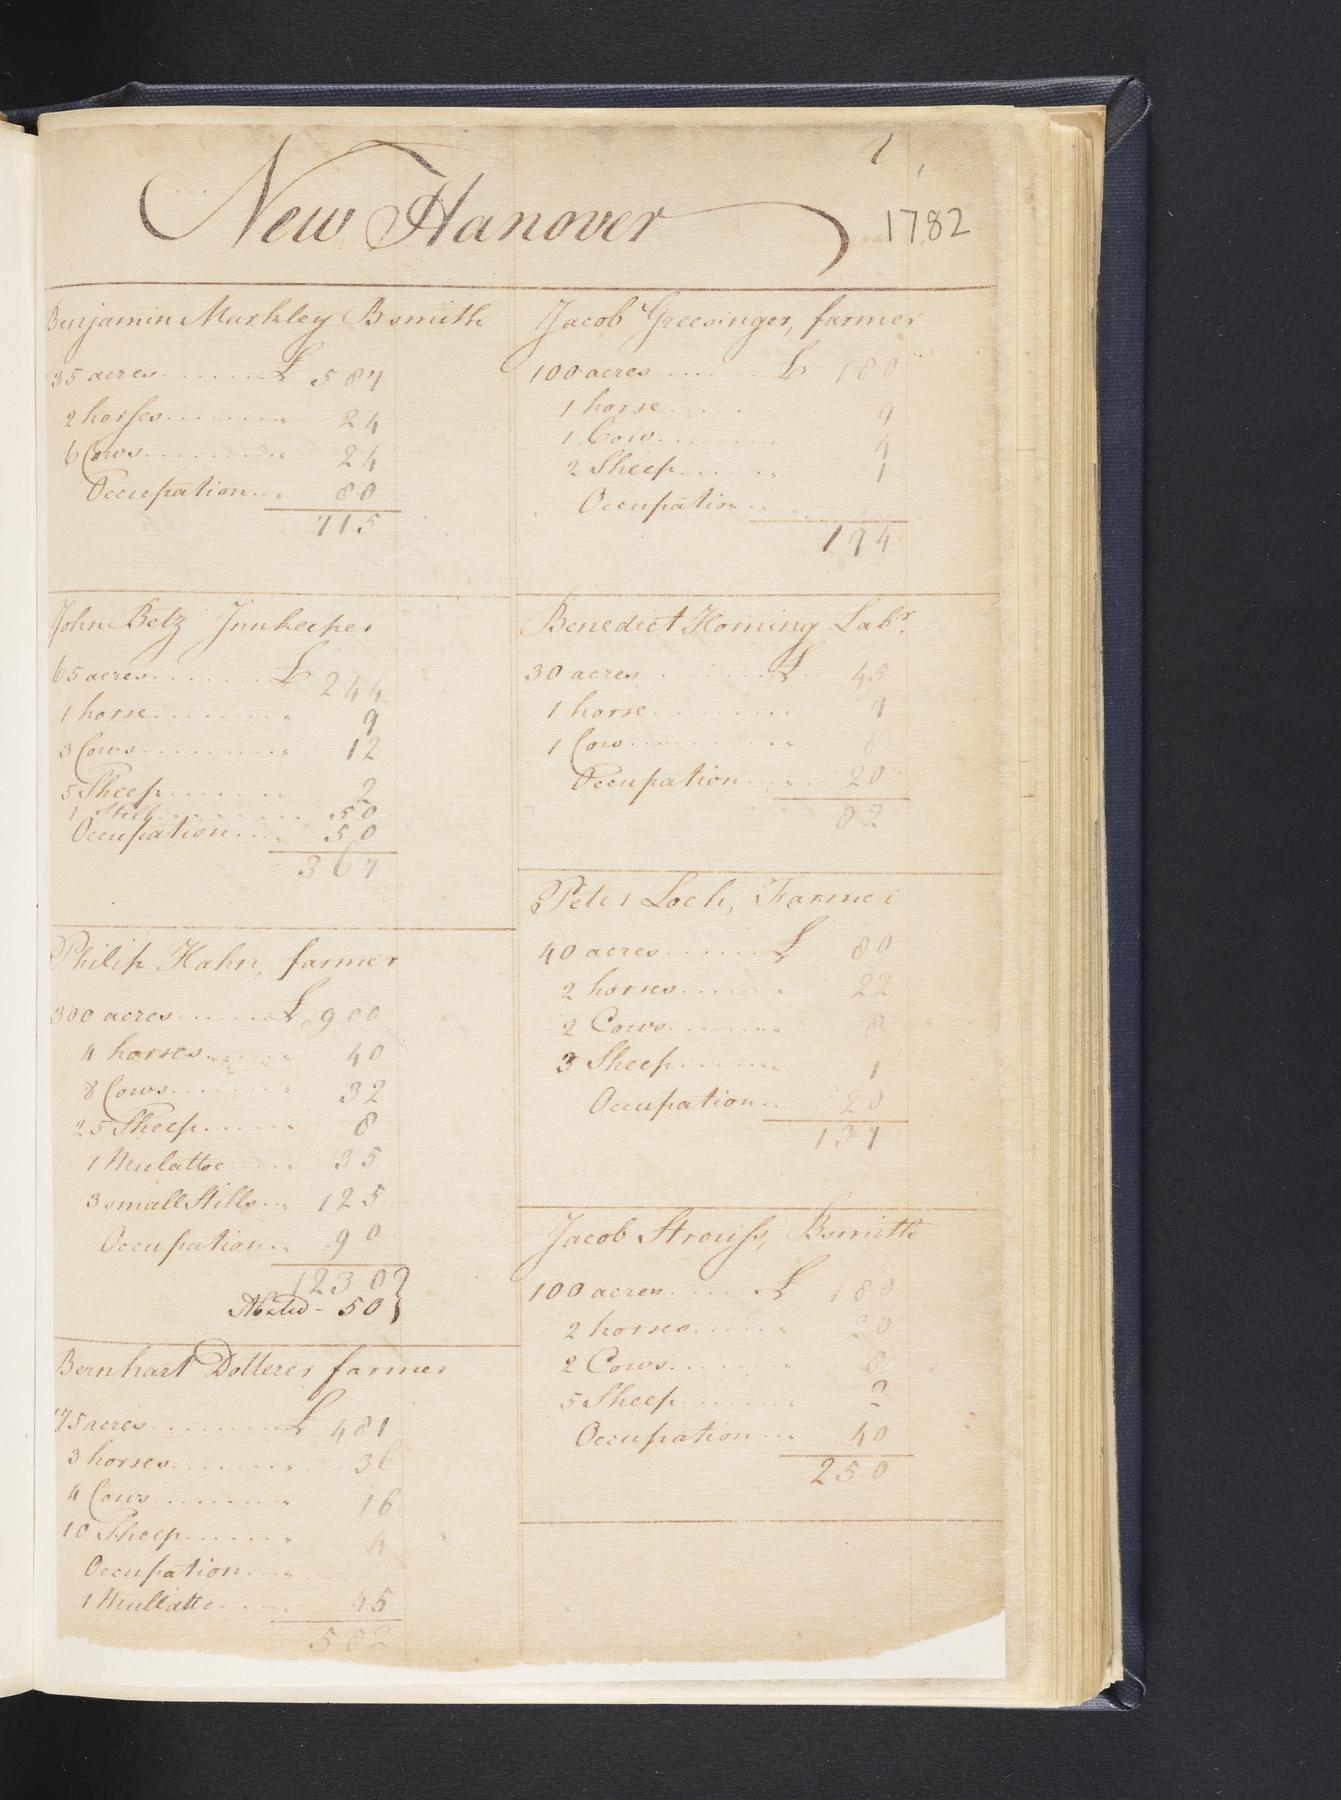 1
New Hanover
1782
Benjamin Markley Bsmith
35 acres ........ £ 587
2 horses ........ " 24
6 Cows ........ " 24
Occupation ... " 80
715
John Betz Innkeeper
65 acres ........ £ 244
1 horse ........ " 9
3 Cows ........ " 12
5 Sheep ........ " 2
1 Still ........ 50
Occupation .... 50
367
Philip Hahn, farmer
300 acres ...... £ 900
4 horses ...... " 40
8 Cows ...... " 32
25 Sheep ...... " 8
1 Mulattoe .... " 35
3 small Stills .. " 125
Occupation .. " 90
1230
Abated - 50
Bernhart Dotterer farmer
175 acres ........ £ 481
3 horses ........ " 36
4 Cows ........ " 16
10 Sheep ....... " 4
Occupation .... "
1 Mullatto .... " 45
582
Jacob Greesinger, farmer
100 acres ...... £ 180
1 horse ...... 9
1 Cow ........ " 4
2 Sheep ...... " 1
Occupation ..
194
Benedict Horning Labr.
30 acres ........ £ 45
1 horse ........ " 9
1 Cow ........ " 8
Occupation .... " 20
82
Peter Loch, Farmer
40 acres ...... £ 80
2 horses ...... " 22
2 Cows ....... " 8
3 Sheep ...... " 1
Occupation .. 20
131
Jacob Strauss, Bsmith
100 acres ...... £ 180
2 horses ...... " 20
2 Cows ....... " 8
5 Sheep ....... " 2
Occupation ... 40
250